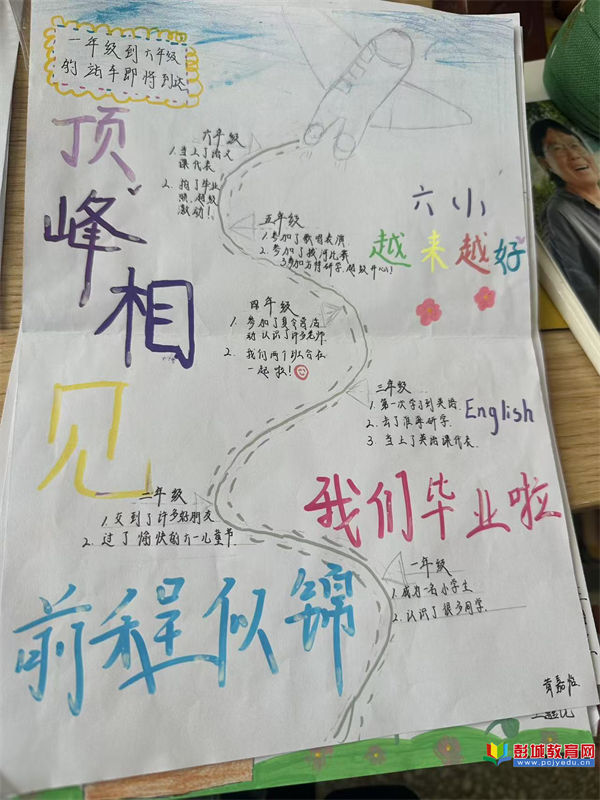 一年级到六年级
的站车即将到达
顶峰相见
六年级
1. 当上了语文
课代表
2. 拍了毕业
照,超级
激动!
五年级
1. 参加了教唱表演
2. 参加了拔河比赛
3 参加方特研学,超级开心!
六小
越来越好
四年级
1. 参加了夏令营活
动认识了许多老师
2. 我们两个班合在
一起啦!
三年级
1. 第一次学了到英语.
2. 去了淮海研学.
3. 当上了英语课代表.
English
我们毕业啦
二年级
1. 交到了许多好朋友
2. 过了愉快的六一儿童节
一年级
1. 成为一名小学生
2. 认识了很多同学.
前程似锦
黄嘉
彭城教育网
www.pcjyedu.cn